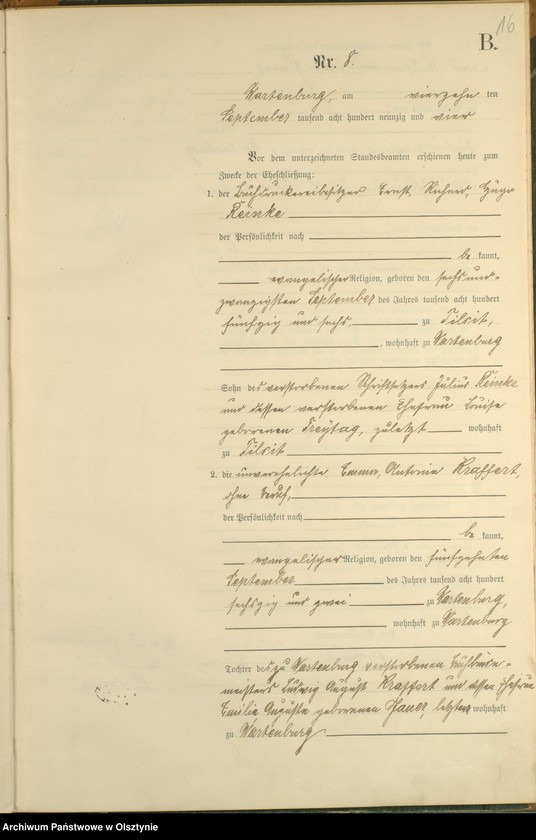 16
B.
Nr. 8.
Wartenburg, am vierzehn ten
September tausend acht hundert neunzig und vier
Vor dem unterzeichneten Standesbeamten erschienen heute zum
Zwecke der Eheschließung:
1. der Buchdruckereibesitzer Ernst, Hugo
Reinke
der Persönlichkeit nach
be kannt,
evangelischer Religion, geboren den sechsund-
zwanzigsten September des Jahres tausend acht hundert
fünfzig und sechs, zu Tilsit,
, wohnhaft zu Wartenburg
Sohn des verstorbenen Schriftsetzers Julius Reinke
und dessen verstorbenen Ehefrau Louise
geborenen Freytag, zuletzt wohnhaft
zu Tilsit
2. die unverehelichte Emma, Antonie Kraffert,
ohne Beruf,
der Persönlichkeit nach
be kannt,
evangelischer Religion, geboren den fünfzehnten
September des Jahres tausend acht hundert
sechszig und zwei zu Wartenburg,
wohnhaft zu Wartenburg
Tochter des zu Wartenburg verstorbenen
meisters Ludwig August Kraffert und dessen Ehefrau
Emilie Auguste geborenen letztere wohnhaft
zu Wartenburg
Archiwum Państwowe w Olsztynie